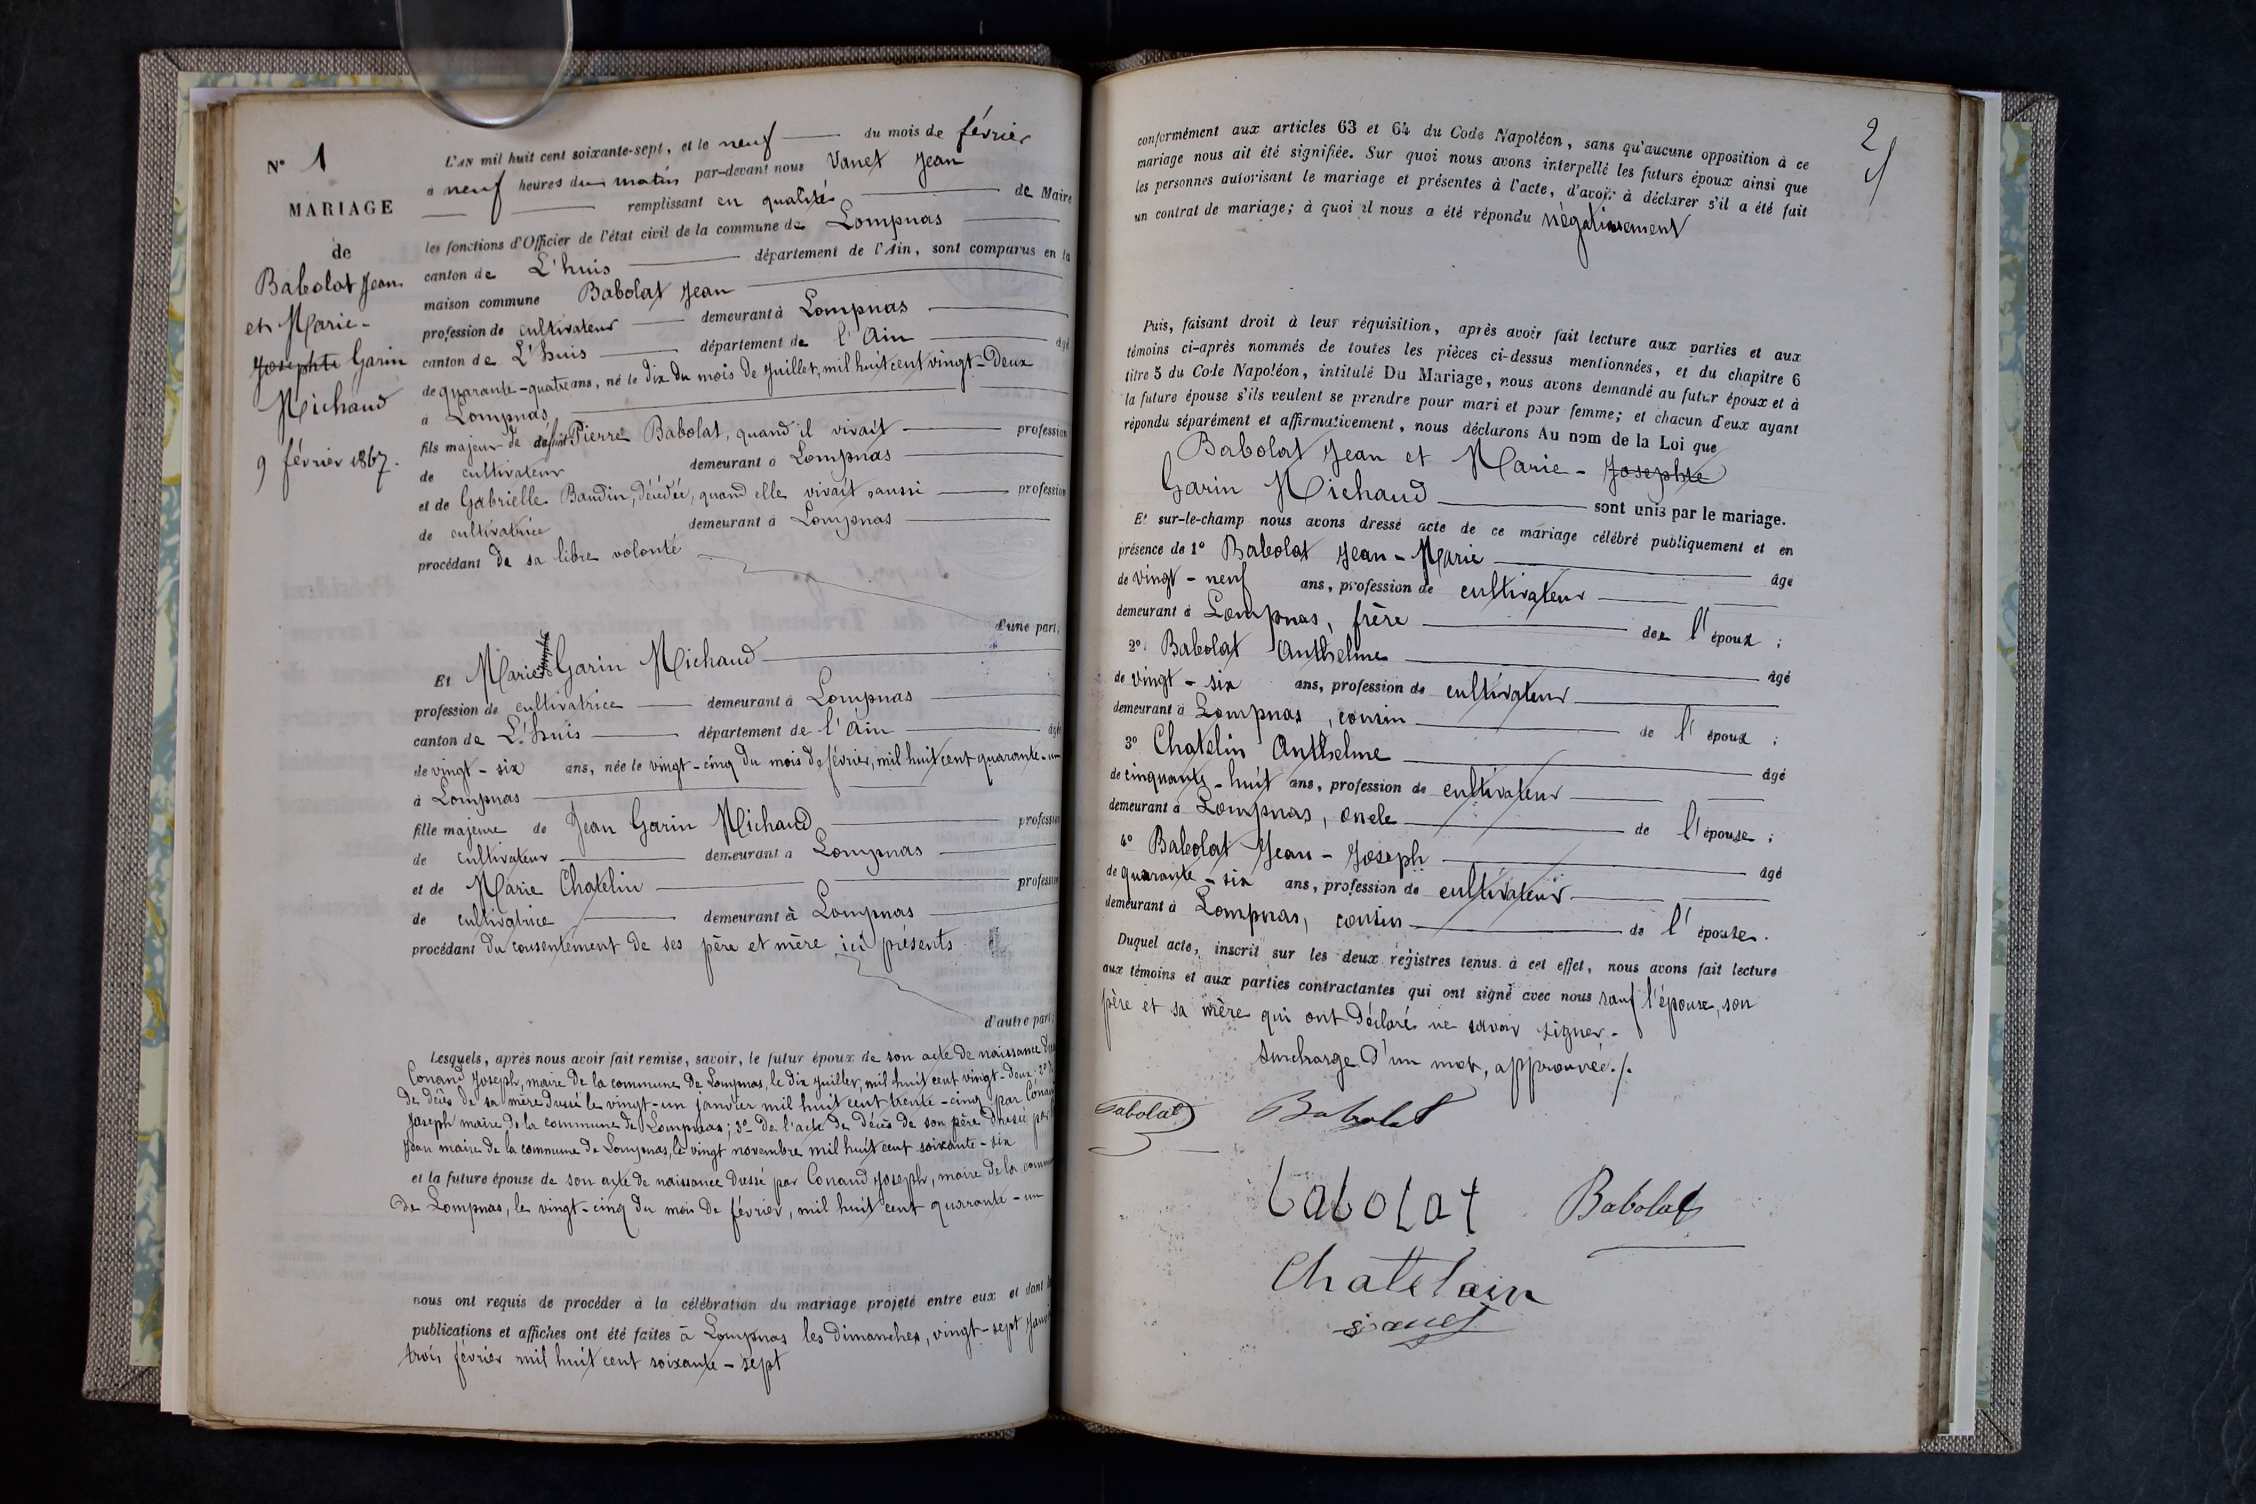 N° 1
MARIAGE
de
Babolat Jean
et Marie-
Josephte Garin
Michaud
9 février 1867.
L'AN mil huit cent soixante-sept, et le neuf du mois de février
à neuf heures du matin par-devant nous Vanet Jean
remplissant en qualité de Maire
les fonctions d'Officier de l'état civil de la commune de Lompnas
canton de L'huis département de l'Ain, sont comparus en la
maison commune Babolat Jean
profession de cultivateur demeurant à Lompnas
canton de L'huis département de l'Ain âgé
de quarante-quatre ans, né le dix du mois de Juillet, mil huit cent vingt-deux
à Lompnas,
fils majeur de défunt Pierre Babolat, quand il vivait profession
de cultivateur demeurant à Lompnas
et de Gabrielle Baudin, décédée, quand elle vivait aussi profession
de cultivatrice demeurant à Lompnas
procédant de sa libre volonté
d'une part;
Et Marie Garin Michaud
profession de cultivatrice demeurant à Lompnas
canton de L'huis département de l'Ain âgée
de vingt-six ans, née le vingt-cinq du mois de février, mil huit cent quarante-un
à Lompnas
fille majeure de Jean Garin Michaud profession
de cultivateur demeurant à Lompnas
et de Marie Chatelin profession
de cultivatrice demeurant à Lompnas
procédant du consentement de ses père et mère ici présents
d'autre part;
Lesquels, après nous avoir fait remise, savoir, le futur époux de son acte de naissance
Conand Joseph, maire de la commune de Lompnas, le dix juillet, mil huit cent vingt-deux; 2°
de décès de sa mère dressé le vingt-un janvier mil huit cent trente-cinq par Conand
Joseph maire de la commune de Lompnas; 3° de l'acte de décès de son père dressé par
Jean maire de la commune de Lompnas, le vingt novembre mil huit cent soixante-six
et la future épouse de son acte de naissance dressé par Conand Joseph, maire de la commune
de Lompnas, le vingt-cinq du mois de février, mil huit cent quarante-un
nous ont requis de procéder à la célébration du mariage projeté entre eux et dont
publications et affiches ont été faites à Lompnas les dimanches, vingt-sept Janvier
trois février mil huit cent soixante-sept
2
conformément aux articles 63 et 64 du Code Napoléon, sans qu'aucune opposition à ce
mariage nous ait été signifiée. Sur quoi nous avons interpellé les futurs époux ainsi que
les personnes autorisant le mariage et présentes à l'acte, d'avoir à déclarer s'il a été fait
un contrat de mariage; à quoi il nous a été répondu négativement
Puis, faisant droit à leur réquisition, après avoir fait lecture aux parties et aux
témoins ci-après nommés de toutes les pièces ci-dessus mentionnées, et du chapitre 6
titre 5 du Code Napoléon, intitulé Du Mariage, nous avons demandé au futur époux et à
la future épouse s'ils veulent se prendre pour mari et pour femme; et chacun d'eux ayant
répondu séparément et affirmativement, nous déclarons Au nom de la Loi que
Babolat Jean et Marie-Josephte
Garin Michaud sont unis par le mariage.
Et sur-le-champ nous avons dressé acte de ce mariage célébré publiquement et en
présence de 1° Babolat Jean-Marie âgé
de vingt-neuf ans, profession de cultivateur
demeurant à Lompnas, frère de l'époux;
2° Babolat Anthelme âgé
de vingt-six ans, profession de cultivateur
demeurant à Lompnas, cousin de l'époux;
3° Chatelin Anthelme âgé
de cinquante-huit ans, profession de cultivateur
demeurant à Lompnas, oncle de l'épouse;
4° Babolat Jean-Joseph âgé
de quarante-six ans, profession de cultivateur
demeurant à Lompnas, cousin de l'épouse.
Duquel acte, inscrit sur les deux registres tenus à cet effet, nous avons fait lecture
aux témoins et aux parties contractantes qui ont signé avec nous sauf l'épouse, son
père et sa mère qui ont déclaré ne savoir signer.
Surcharge d'un mot, approuvée./.
Babolat Babolat
babolat Babolat
Chatelain